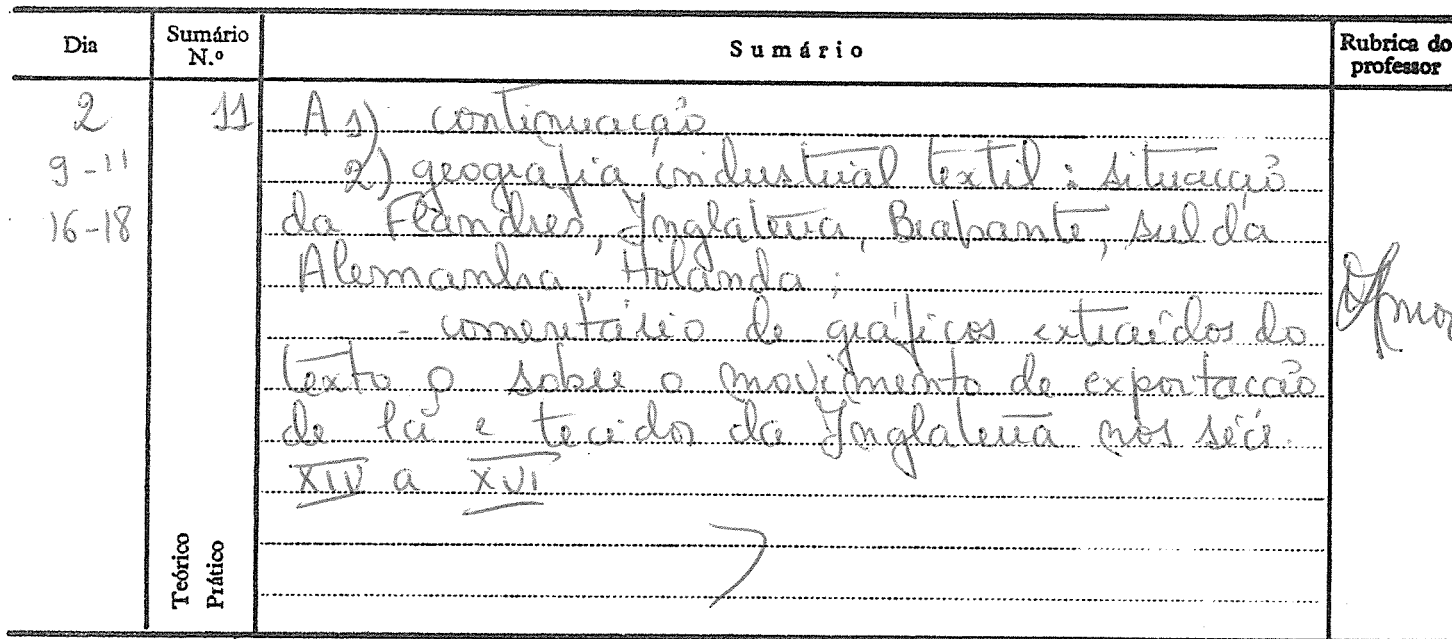 Dia Sumário N.º Sumário Rubrica do professor
2 11 A 1) continuação
9-11 2) geografia industrial textil : situação
16-18 da Flandres, Inglaterra, Brabante, sul da
Alemanha, Holanda ;
- comentário de gráficos extraídos do
texto 9 sobre o movimento de exportação
de lã e tecidos da Inglaterra nos sécs.
XIV a XVI
Teórico
Prático